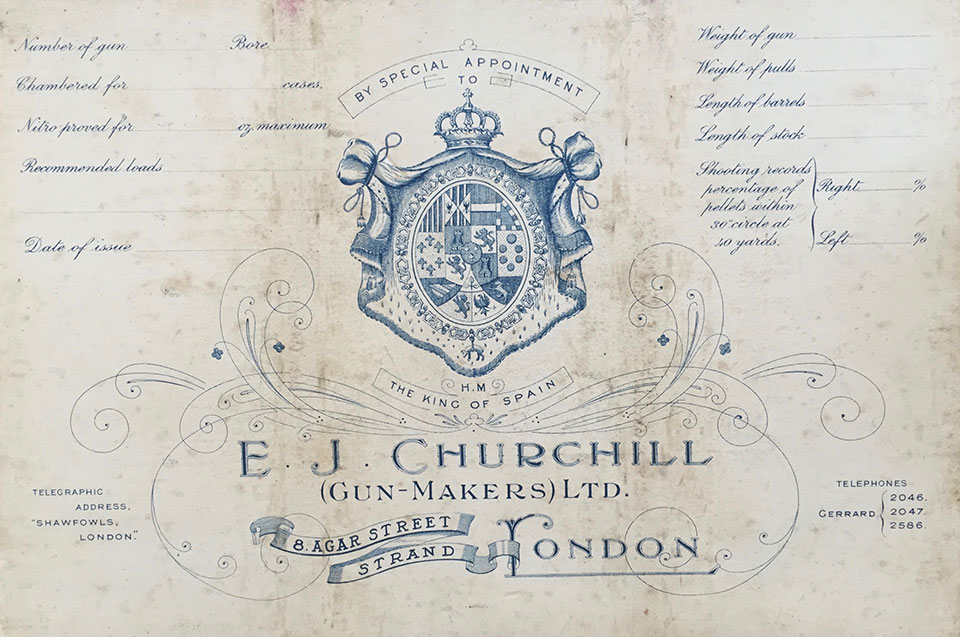 Number of gun Bore
Chambered for cases.
Nitro-proved for oz. maximum
Recommended loads
Date of issue
BY SPECIAL APPOINTMENT
TO
Weight of gun
Weight of pulls
Length of barrels
Length of stock
Shooting records
percentage of
pellets within
30" circle at
40 yards.
Right %
Left %
H.M
THE KING OF SPAIN
E. J. CHURCHILL
(GUN-MAKERS) LTD.
8. AGAR STREET
STRAND
LONDON
TELEGRAPHIC
ADDRESS,
"SHAWFOWLS,
LONDON."
TELEPHONES
GERRARD
2046.
2047.
2586.